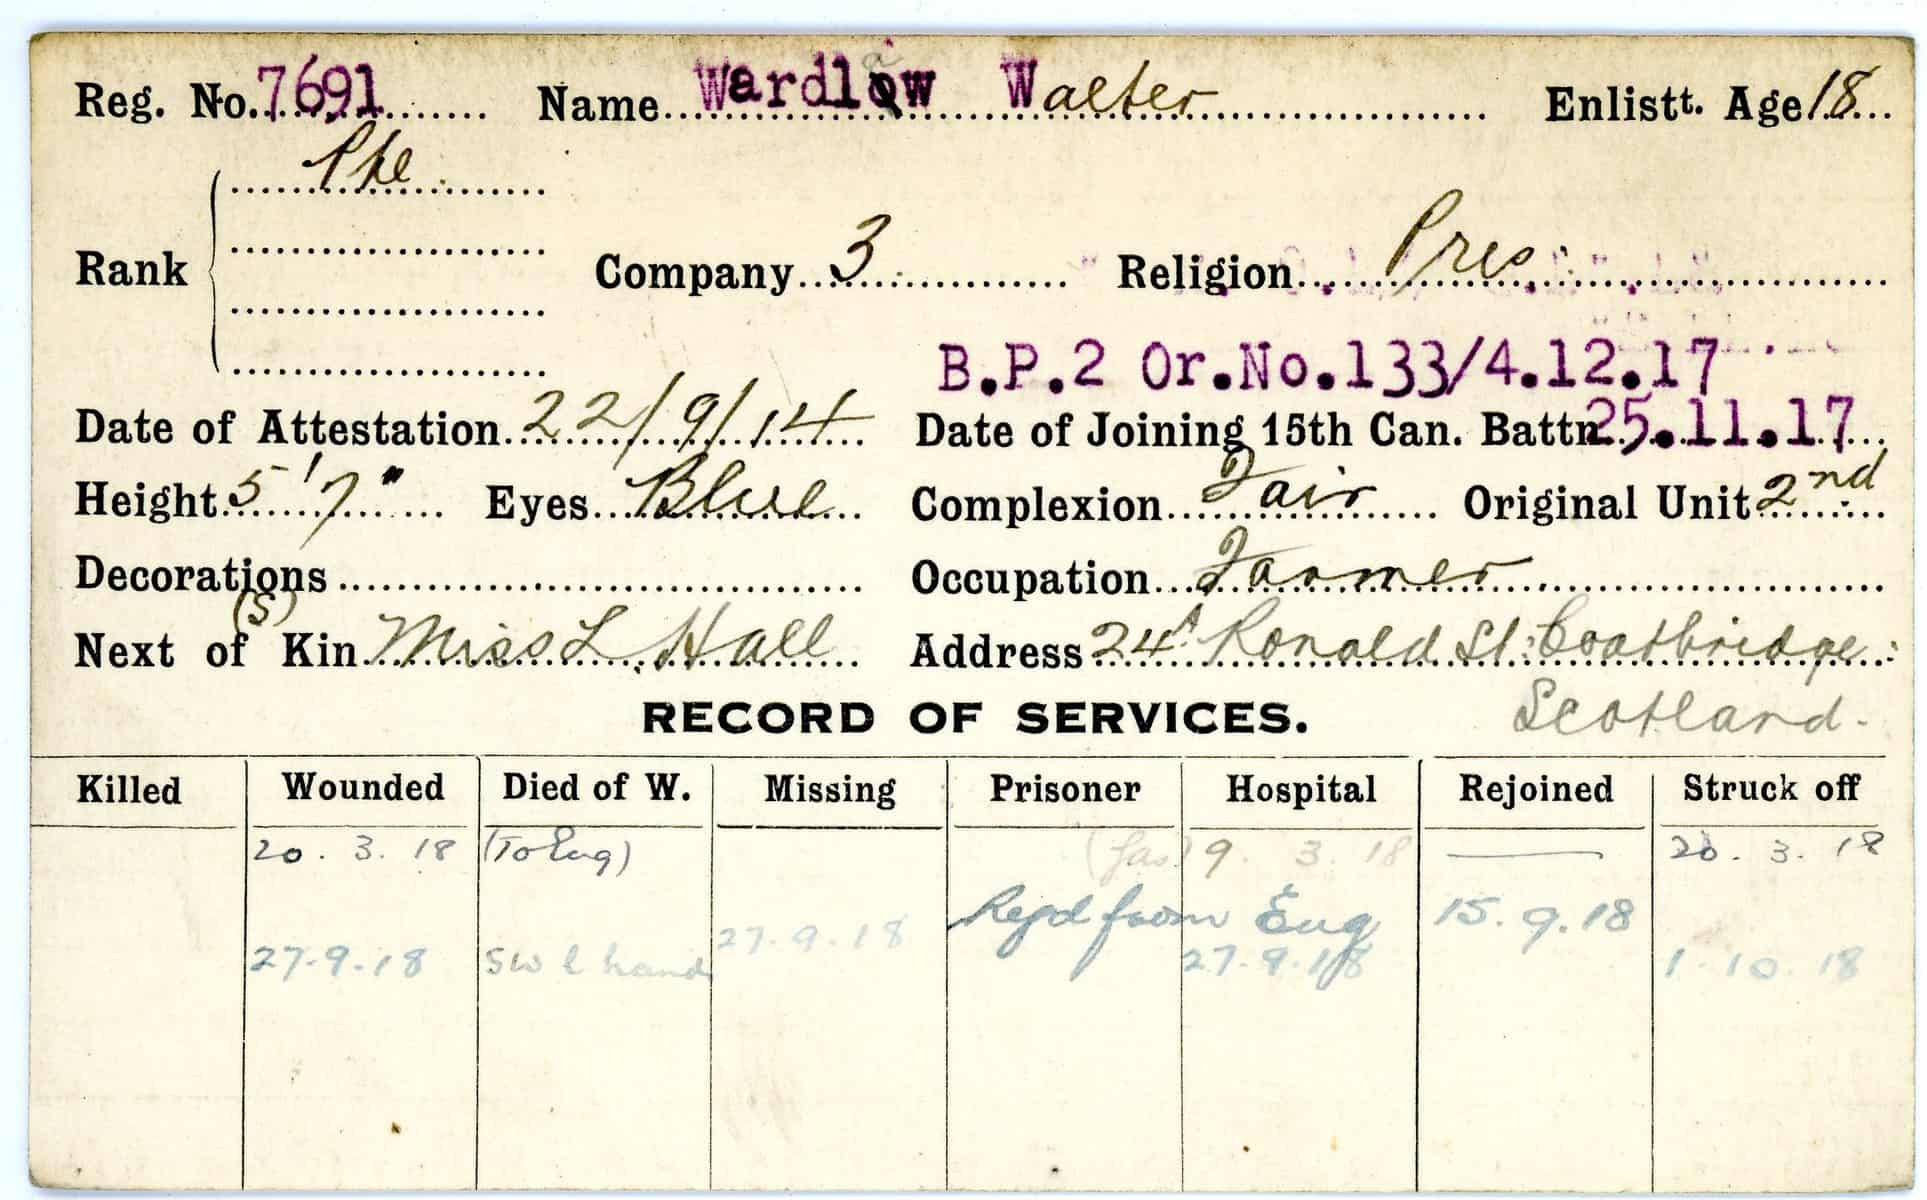 Reg. No. 7691 Name Wardlaw Walter Enlistt. Age 18
Pte
Rank Company 3 Religion Pres
B.P.2 Or.No.133/4.12.17
Date of Attestation 22/9/14 Date of Joining 15th Can. Battn. 25.11.17
Height 5'7" Eyes Blue Complexion Fair Original Unit 2nd
Decorations Occupation Farmer
(S)
Next of Kin Miss L. Hall Address 24A Ronald St. Coatbridge
RECORD OF SERVICES. Scotland.
Killed Wounded Died of W. Missing Prisoner Hospital Rejoined Struck off
20. 3. 18 (To Eng) (Gas) 9. 3. 18 — 20. 3. 18
Rejd from Eng 15.9.18
27.9.18 SW l hand 27.9.18 27.9.18 1.10.18